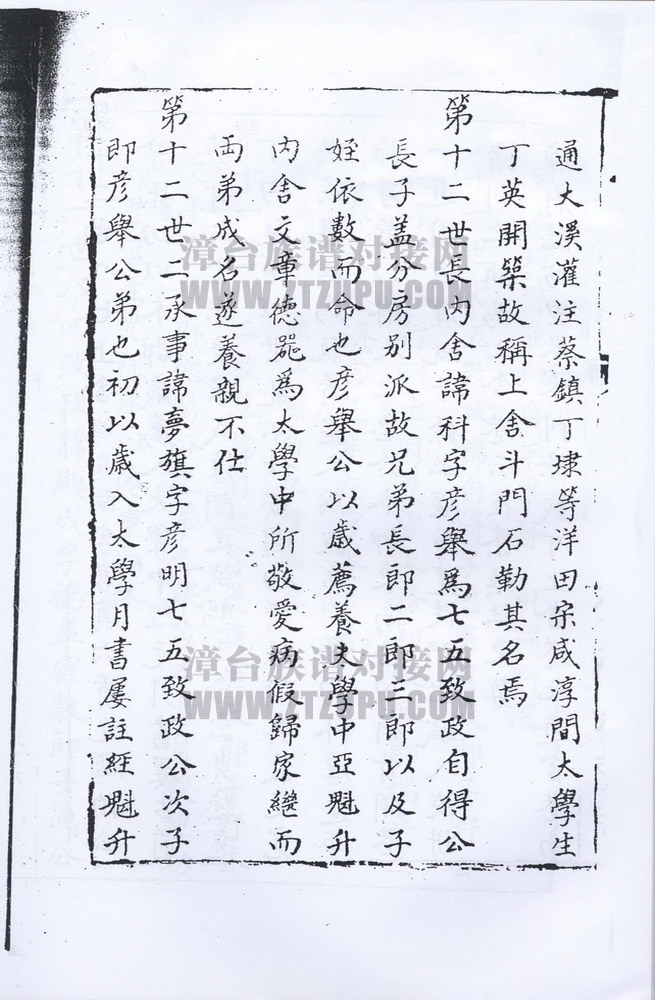 通大溪灌注蔡鎮丁埭等洋田宋咸淳間太學生
丁英開築故稱上舍斗門石勒其名焉
第十二世長內舍諱科字彦舉爲七五致政自得公
長子盖分房別派故兄弟長郎二郎三郎以及子
姪依數而命也彦舉公以歲薦養太學中亞魁升
內舍文章德噐爲太學中所敬愛病假歸家繼而
両弟成名遂養親不仕
第十二世二承事諱夢旗字彦明七五致政公次子
即彦舉公弟也初以歲入太學月書屢註經魁升
漳台族谱对接网
WWW.ZTZUPU.COM
漳台族谱对接网
WWW.ZTZUPU.COM